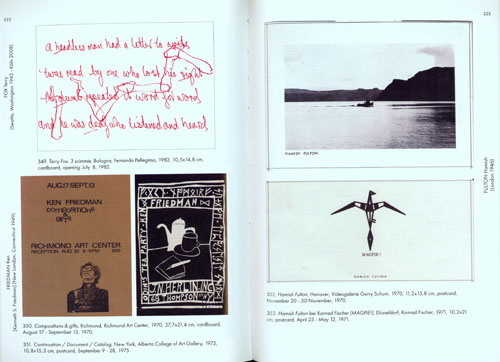 FOX Terry
[Seattle, Washington 1943 - Köln 2008]
a headless man had a letter to write
'twas read by one who lost his sight
the dumb repeated it word for word
and he was deaf who listened and heard
349. Terry Fox. 3 scimmie, Bologna, Fernando Pellegrino, 1982, 10,5x14,8 cm,
cardboard, opening: July 8, 1982.
FRIEDMAN Ken
[Kenneth S. Friedman] [New London, Connecticut 1949]
AUG.17-SEPT.13
KEN FRIEDMAN
compositions
&
gifts
RICHMOND ART CENTER
RECEPTION AUG 20 8-9PM 1970
FRIEDMAN
TEA PARTY
THOMPSON
350. Compositions & gifts, Richmond, Richmond Art Center, 1970, 27,7x21,4 cm, cardboard,
August 17 - September 13, 1970.
351. Continuation / Document / Catalog, New York, Alberta College of Art Gallery, 1975,
10,8x15,3 cm, postcard, September 9 - 28, 1975.
FULTON Hamish
[London 1946]
HAMISH FULTON
MAGPIE!
HAMISH FULTON
352. Hamish Fulton, Hanover, Videogalerie Gerry Schum, 1970, 11,2x15,8 cm, postcard,
November 20 - 30 November, 1970.
353. Hamish Fulton bei Konrad Fischer (MAGPIE!), Düsseldorf, Konrad Fischer, 1971, 10,2x21
cm, postcard, April 23 - May 12, 1971.